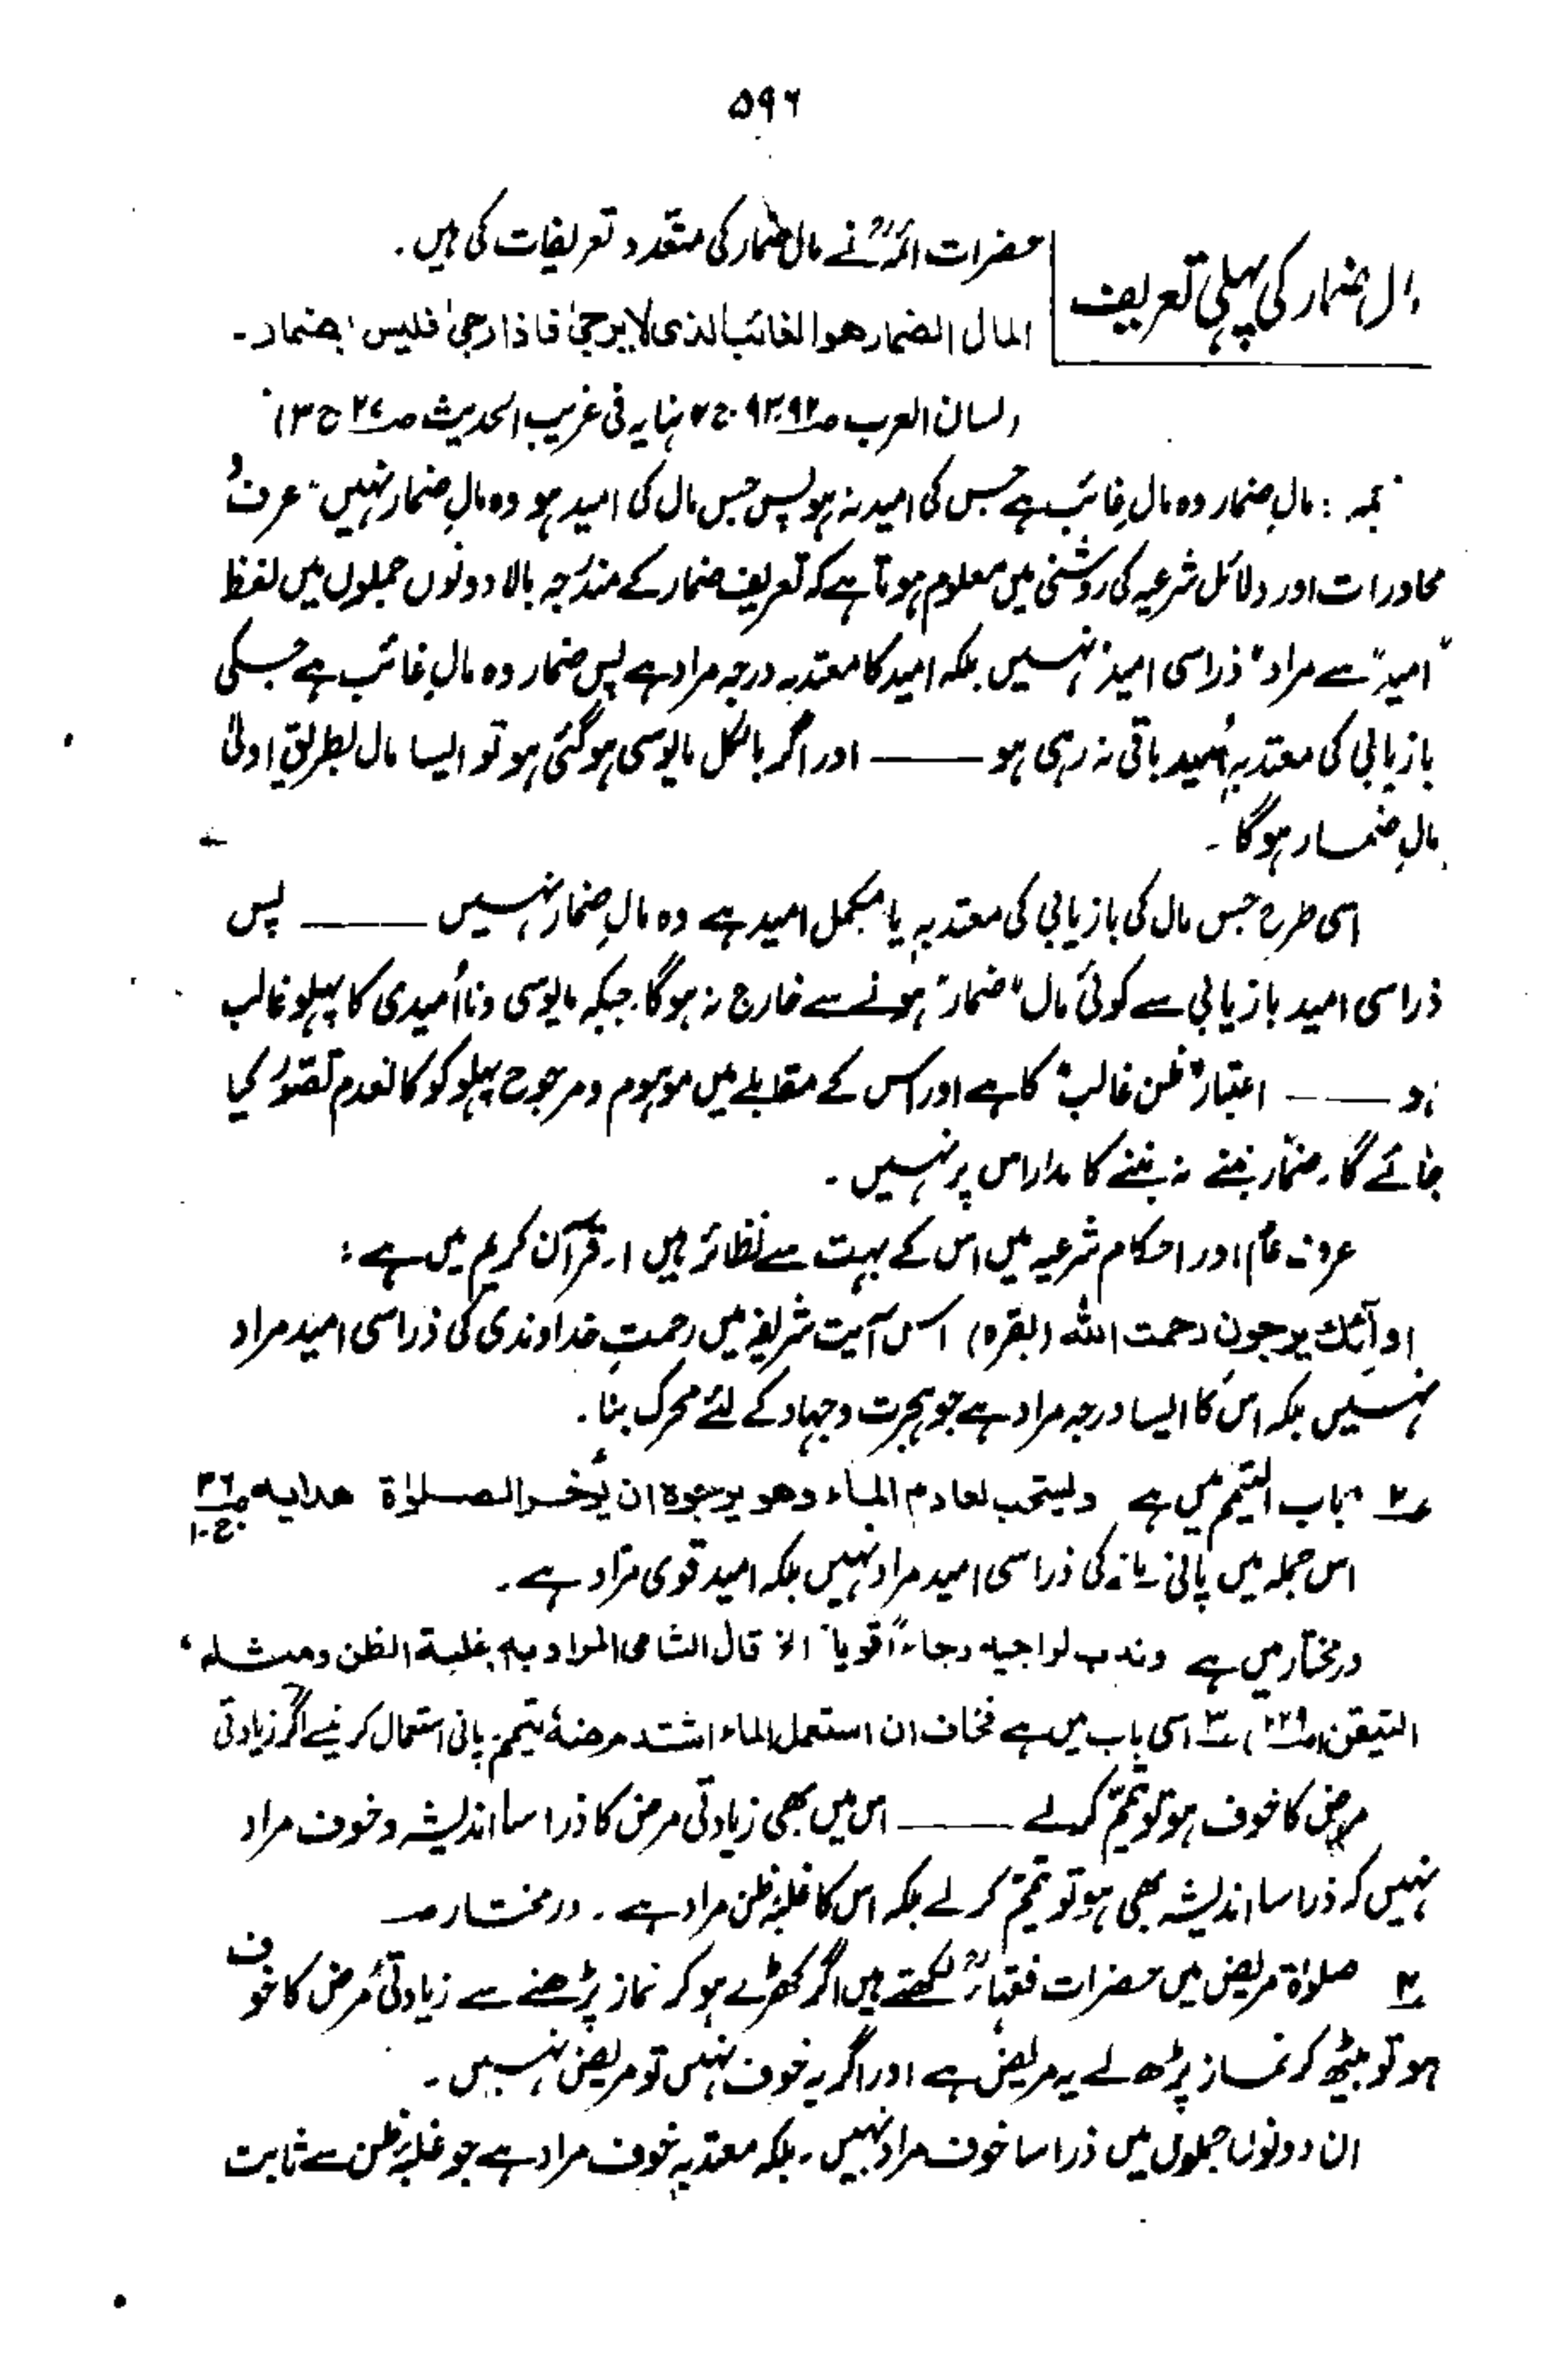 ۵۹۶
مال ضمار کی پہلی تعریف
حضرات ائمہؒ نے مال ضمار کی متعدد تعریفات کی ہیں ۔
المال الضمار هو الغائب الذی لا یرجیٰ فاذا رجیٰ فلیس بضمار ۔
(لسان العرب ج۴ نہایہ فی غریب الحدیث ج۳)
مالِ ضمار وہ مالِ غائب ہے جس کی امید نہ ہو پس جس مال کی امید ہو وہ مالِ ضمار نہیں " عرف و
محاورات اور دلائل شرعیہ کی روشنی میں معلوم ہوتا ہے کہ تعریف ضمار کے مندرجہ بالا دونوں جملوں میں لفظ
"امید" سے مراد "ذرا سی امید" نہیں بلکہ امید کا معتدبہ درجہ مراد ہے پس ضمار وہ مالِ غائب ہے جسکی
بازیابی کی معتدبہ اُمید باقی نہ رہی ہو ــــــ اور اگر بالکل مایوسی ہو گئی ہو تو ایسا مال بطریقِ اولیٰ
مالِ ضمار ہوگا ۔
اسی طرح جس مال کی بازیابی کی معتدبہ یا مکمل امید ہے وہ مالِ ضمار نہیں ــــــ پس
ذرا سی امید بازیابی سے کوئی مال "ضمار" ہونے سے خارج نہ ہوگا۔ جبکہ مایوسی و نا اُمیدی کا پہلو غالب
ہو ــــــ اعتبار "ظن غالب" کا ہے اور اس کے مقابلے میں موہوم و مرجوح پہلو کو کالعدم تصوّر کیا
جائے گا۔ ضمار بننے نہ بننے کا مدار اس پر نہیں ۔
عرف عام اور احکام شرعیہ میں اس کے بہت سے نظائر ہیں ۱۔ قرآن کریم میں ہے :
اولٰٓئک یرجون رحمت اللہ (بقرہ) اس آیت شریفہ میں رحمتِ خداوندی کی ذرا سی امید مراد
نہیں بلکہ اس کا ایسا درجہ مراد ہے جو ہجرت و جہاد کے لئے محرک بنا ۔
۲ باب التیمم میں ہے ولیستحب لعادم الماء وهو یرجوہ ان یؤخر الصلوٰة هدایہ ص۳۶ ج۱
اس جملہ میں پانی پانے کی ذرا سی امید مراد نہیں بلکہ امید قوی مراد ہے ۔
درمختار میں ہے وندب لراجیہ رجاءً قویا الخ قال الشامی المراد بہ غلبة الظن ومثلہ
التیقن (ص۲۲۹) ۳ اسی باب میں ہے فخاف ان استعمل الماء اشتد مرضہٗ یتیمم پانی استعمال کرنیسے اگر زیادتی
مرض کا خوف ہو تو تیمّم کرلے ــــــ اس میں بھی زیادتی مرض کا ذرا سا اندیشہ و خوف مراد
نہیں کہ ذرا سا اندیشہ بھی ہو تو تیمّم کرلے بلکہ اس کا غلبۂ ظن مراد ہے ۔ درمختار صـ
۴ صلوٰة مریض میں حضرات فقہاءؒ لکھتے ہیں اگر کھڑے ہو کر نماز پڑھنے سے زیادتی مرض کا خوف
ہو تو بیٹھ کر نماز پڑھ لے یہ مریض ہے اور اگر یہ خوف نہیں تو مریض نہیں ۔
ان دونوں جملوں میں ذرا سا خوف مراد نہیں ۔ بلکہ معتدبہ خوف مراد ہے جو غلبۂ ظن سے ثابت